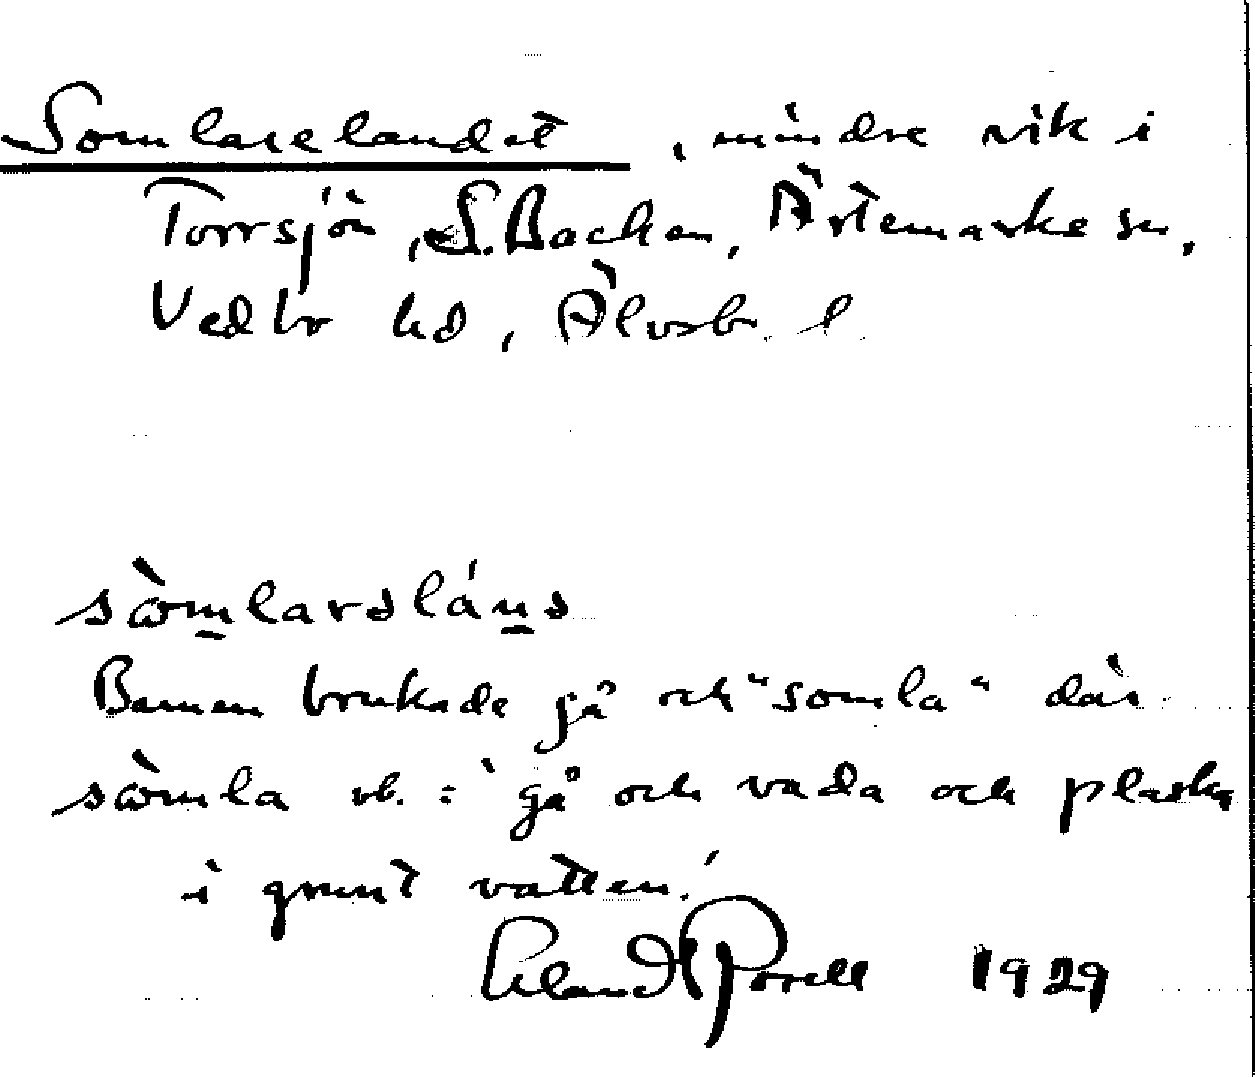 Somlarelandet, mindre vik i
Torrsjön, S. Backen, Ärtemarke sn,
Vedbo hd, Älvsb. l
sòmlarsláns
Barnen brukade gå och "somla" där
sòmla vb. = 'gå och vada och plaska
i grunt vatten.'
1929